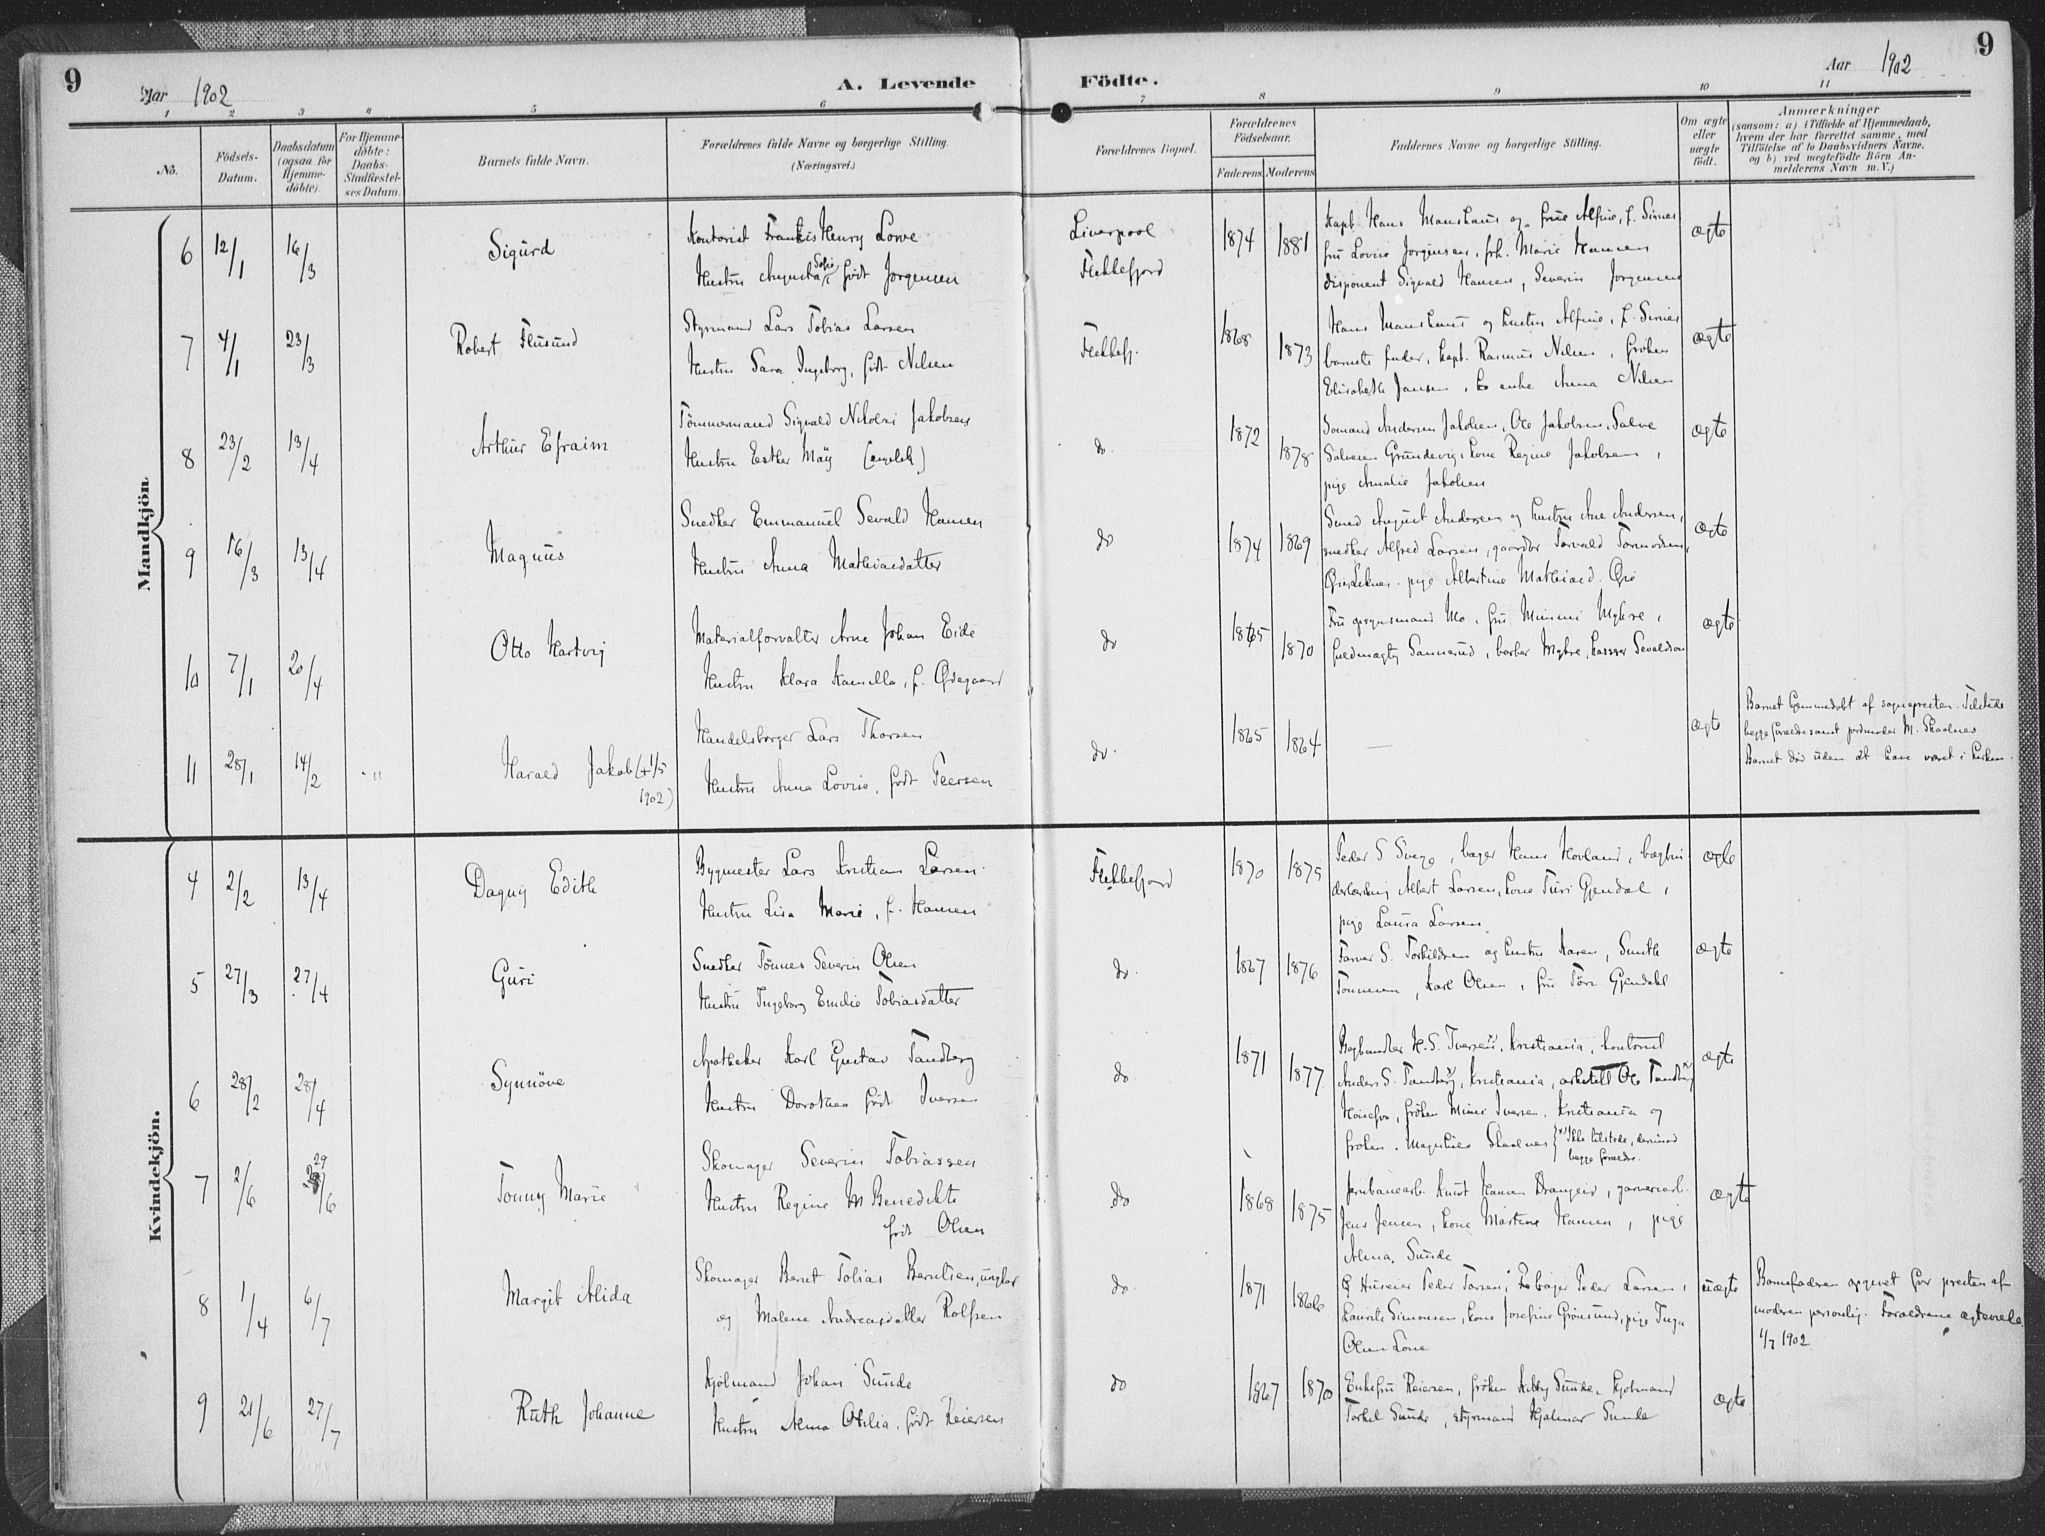 9
Aar 1902
A. Levende
Födte.
Aar 1902
9
1 2 3 4 5 6 7 8 9 10 11
No.
Födsels-
Datum.
Daabsdatum
(ogsaa for
Hjemme-
döbte).
For Hjemme-
döbte:
Daabs-
Stadfæstel-
ses Datum.
Barnets fulde Navn.
Forældrenes fulde Navne og borgerlige Stilling.
(Næringsvei.)
Forældrenes Bopæl.
Forældrenes
Födselsaar.
Faderens Moderens
Faddernes Navne og borgerlige Stilling.
Om ægte
eller
uægte
født.
Anmærkninger
(saasom: a) i Tilfælde af Hjemmedaab,
hvem der har forrettet samme, med
Tilføielse af to Daabsvidners Navne.
og b) ved uægtefödte Börn An-
melderens Navn m. V.)
Mandkjön.
6 12/1 16/3 Sigurd
Kontorist Francis Henry Lowe
Hustru Augusta Sofie født Jørgensen
Liverpool
Flekkefjord
1874 1881
Kapt. Hans Manshaus og frue Alfine, f. Sirnes
fru Lovise Jørgensen, frk. Marie Hansen
disponent Sigvald Hansen, Severin Jørgensen
ægte
7 4/1 23/3 Robert Flusund
Styrmand Lars Tobias Larsen
Hustru Sara Ingeborg, født Nilsen
Flekkefj.
1868 1873
Hans Manshaus og hustru Alfine, f. Sirnes
barnets fader, kapt. Rasmus Nilsen, frøken
Elisabeth Jansen, enke Anna Nilsen
ægte
8 23/2 13/4 Arthur Efraim
Tømmermand Sigvald Nikolai Jakobsen
Hustru Esther May (engelsk)
do.
1872 1878
Sømand Andersen Jakobsen, Ole Jakobsen, Salve
Salvesen Grundevig, kone Regine Jakobsen,
pige Amalie Jakobsen
ægte
9 16/3 13/4 Magnus
Snedker Emmanuel Sevald Hansen
Hustru Anna Mathiasdatter
do
1874 1869
Smed August Andersen og hustru Ane Andersen,
snedker Alfred Larsen, gaardbr Torvald Tormodsen
pige Albertine Mathiasd. Øie
ægte
10 7/1 20/4 Otto Hartvig
Materialforvalter Arne Johan Eide
Hustru Klara Kamilla, f. Ødegaard
do
1865 1870
Fru opsynsmand Mo, fru Mimmi Myhre,
fuldmægtig Sannerud, barber Myhre, kasser Sevaldson
ægte
11 28/1 14/2 " Harald Jakob (+ 1/5
1902)
Handelsborger Lars Thorsen
Hustru Anna Lovise, født Peersen
do.
1865 1864
—
ægte
Barnet hjemmedøbt af sognepresten. Tilstede
begge forældre samt jordmoder M. Skaalnes
Barnet død uden at have været i kirken.
Kvindekjön.
4 2/2 13/4 Dagny Edith
Bygmester Lars Kristian Larsen
Hustru Lisa Marie, f. Hansen
Flekkefjord
1870 1875
Peder S Svege, bager Hans Hovland, bogbin
derlærling Albert Larsen, kone Turi Gjendal,
pige Laura Larsen
ægte
5 27/3 27/4 Guri
Snedker Tønnes Severin Olsen
Hustru Ingeborg Emilie Tobiasdatter
do.
1867 1876
Farver S. Torkildsen og hustru Karen,
Tønnesen, Karl Olsen, fru Gjendahl
ægte
6 28/2 28/4 Synnöve
Apotheker Karl Gustav Tandberg
Hustru Dorothea født Iversen
do.
1871 1877
Boghandler H. S. Iversen, Kristiania, kontorist
Anders S. Tandberg, Kristiania, arkitekt Ole Tandberg x)
Hønefos, frøken Mimi Iversen, Kristiania og
frøken Skaalnes x) Ikke tilstede, derimod
begge forældre.
ægte
7 2/6 29/6 Tonny Marie
Skomager Severin Tobiassen
Hustru Regine M Benedikte
født Olsen
do
1868 1875
Jernbanearb. Knut Hansen Drangeid, garverarb.
Jens Jensen, kone Martine Hansen, pige
Alma Sunde
ægte
8 1/4 6/7 Margit Alida
Skomager Bernt Tobias Berntsen, ungkar
og Malene Andreasdatter Rolfsen
do.
1871 1866
Huseier Peder Torsen, Peder Larsen,
Laurits Simonsen, kone Josefine Grønsund, pige Inga
Olsen Lone
uægte
Barnefaderen opgivet for presten af
moderen personlig. Forældrene ægteviede
1/7 1902
9 21/6 27/7 Ruth Johanne
Kjølmand Johan Sunde
Hustru Alma Otilia, født Reiersen
do
1867 1870
Enkefru Reiersen, frøken Kitty Sunde, kjølmand
Torkel Sunde, styrmand Hjalmar Sunde
ægte